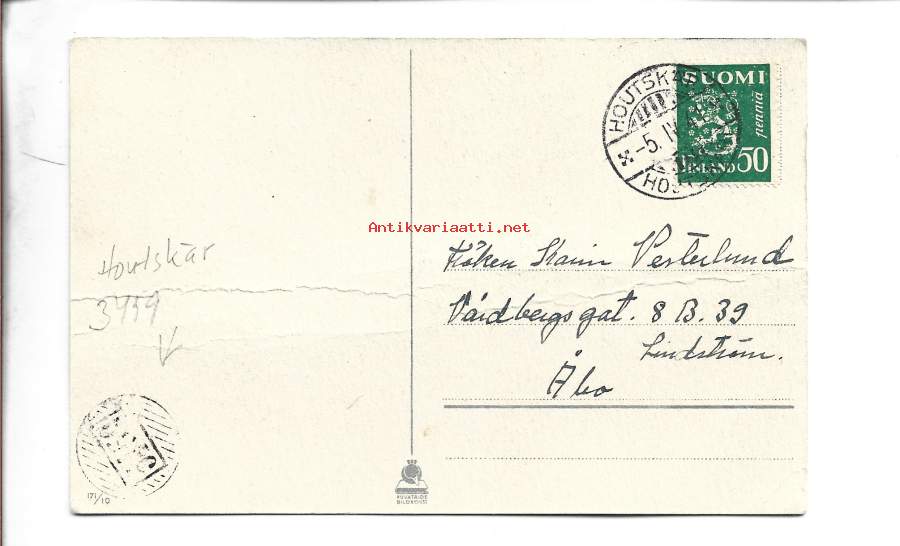 HOUTSKÄR
-5. IV.
SUOMI
penniä
FINLAND 50
Antikvariaatti.net
Fröken Karin Vesterlund
Vårdbergsgat. 8 B. 39
Lindström.
Åbo
Houtskär
3459
171/10